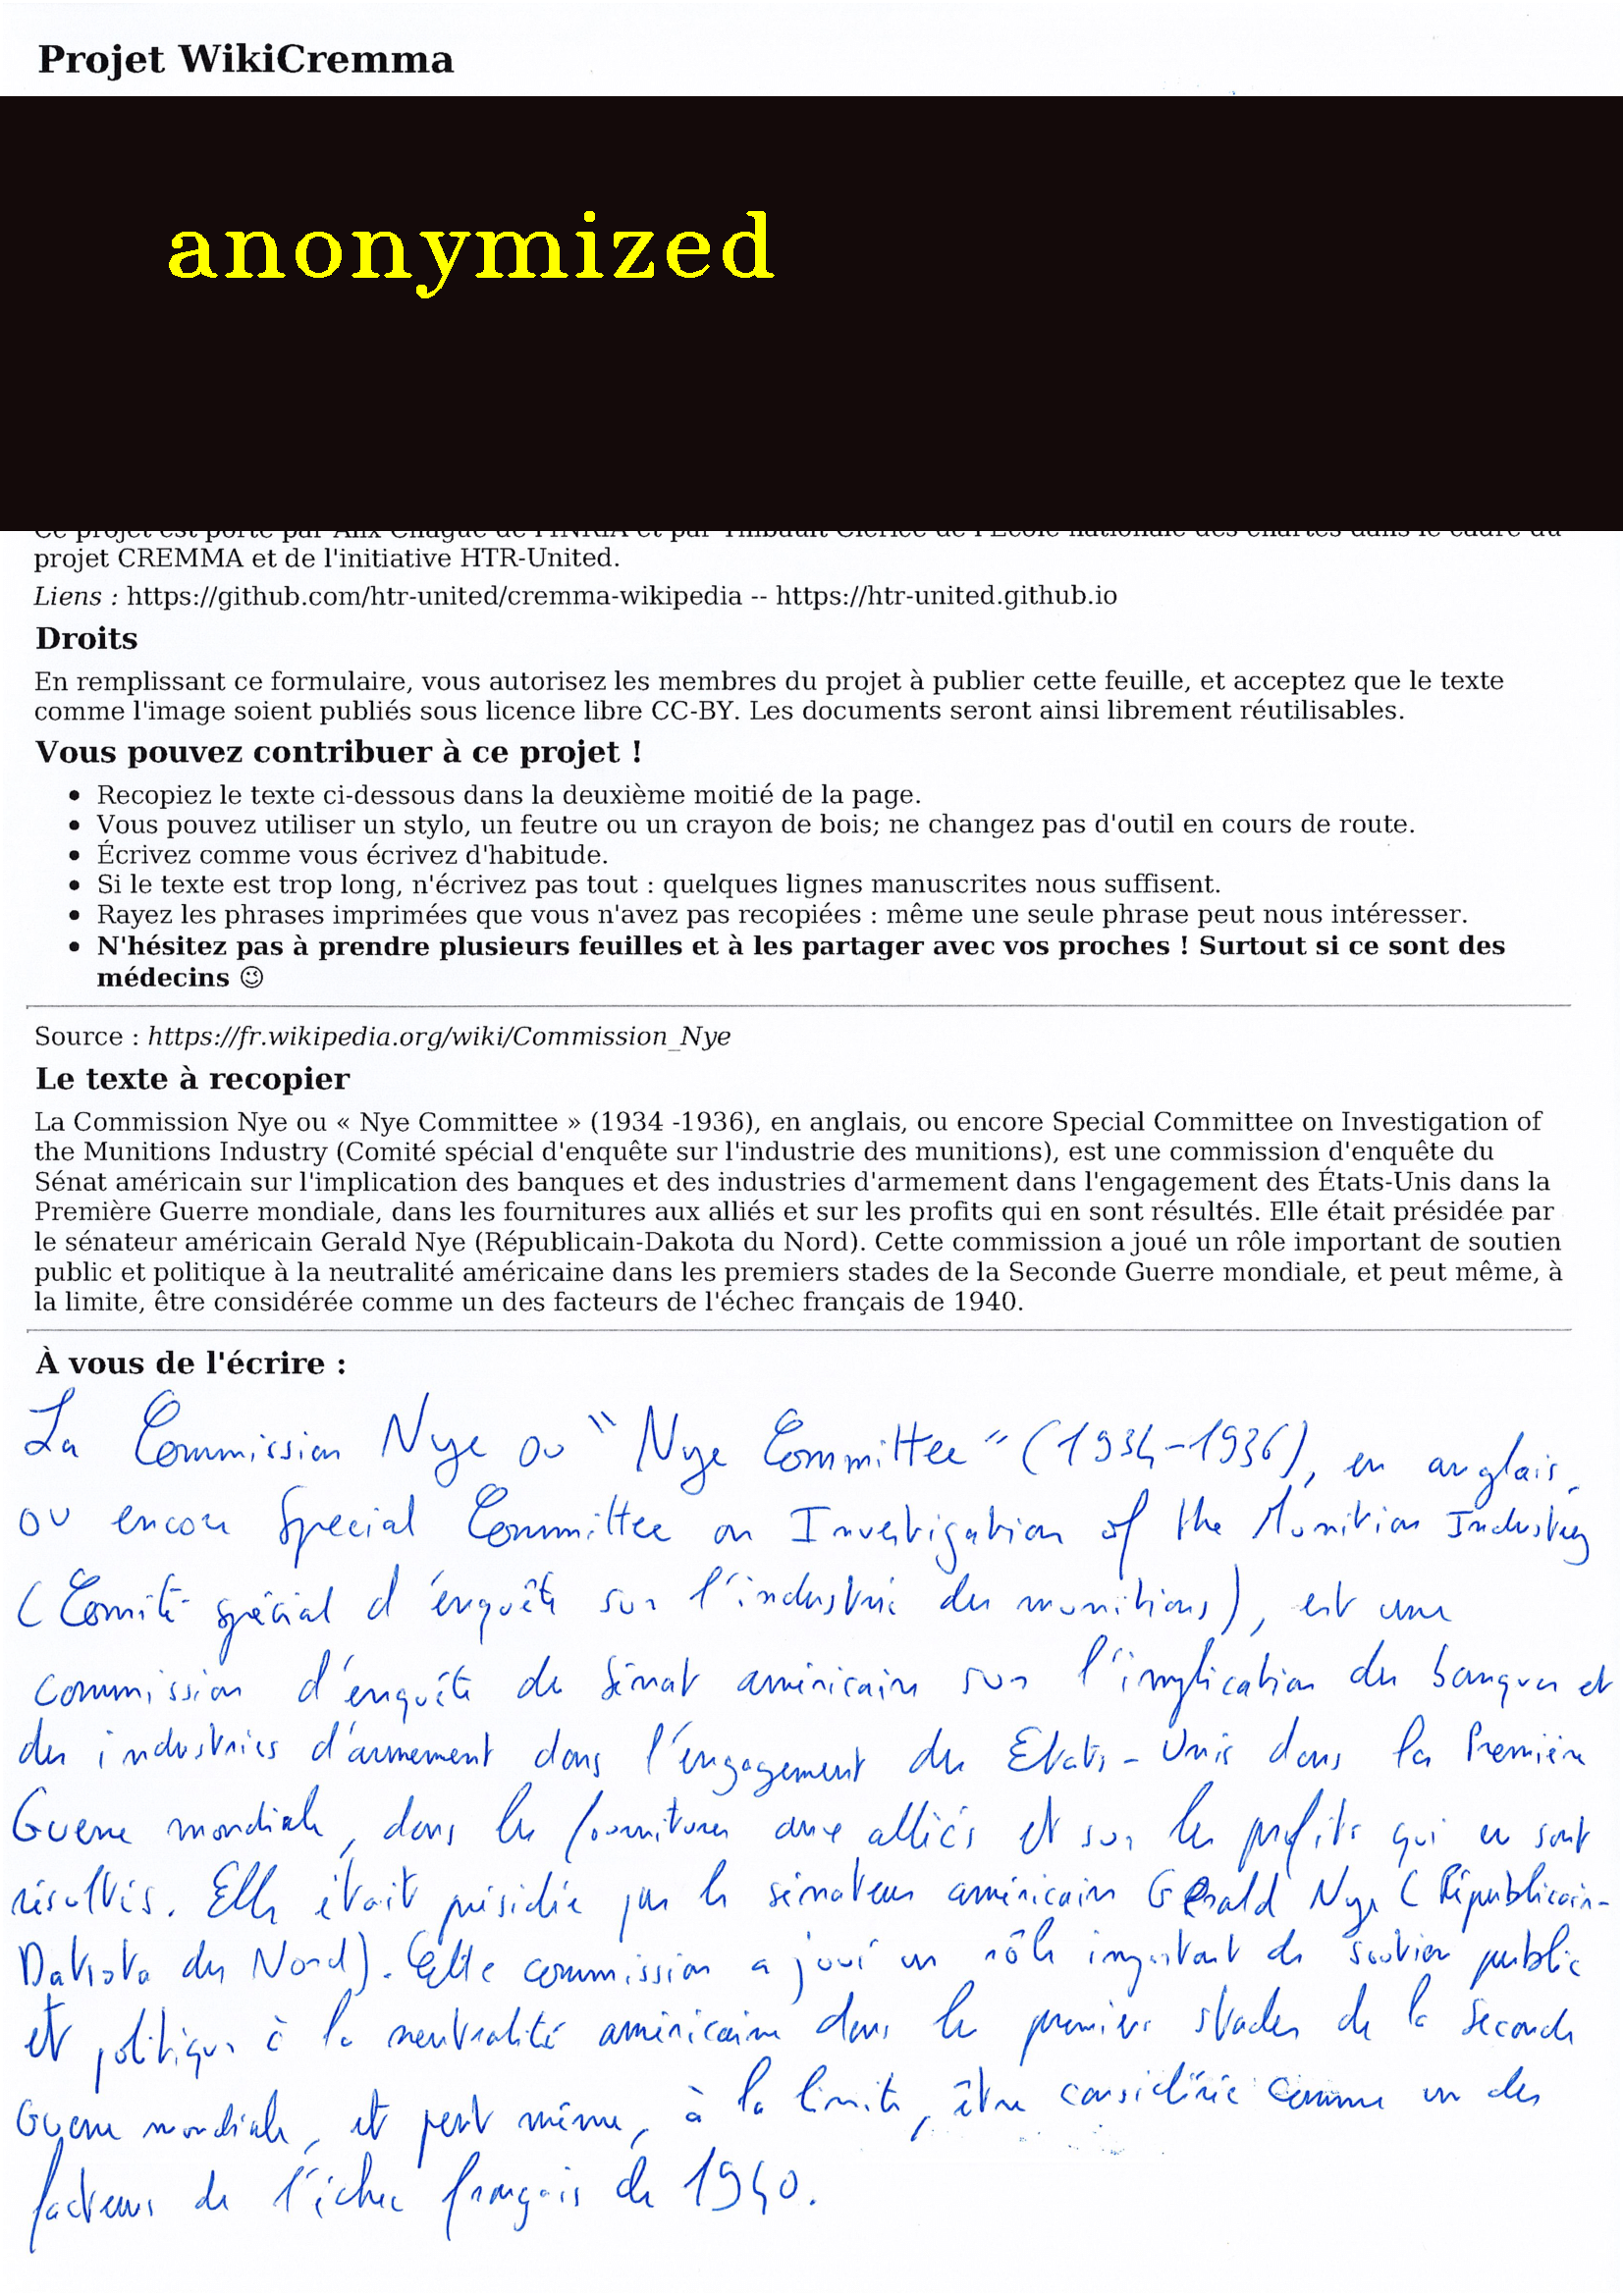 Projet WikiCremma
anonymized
Ce projet est porté par Alix Chagué de l'INRIA et par Thibault Clérice de l'École nationale des chartes dans le cadre du
projet CREMMA et de l'initiative HTR-United.
Liens : https://github.com/htr-united/cremma-wikipedia -- https://htr-united.github.io
Droits
En remplissant ce formulaire, vous autorisez les membres du projet à publier cette feuille, et acceptez que le texte
comme l'image soient publiés sous licence libre CC-BY. Les documents seront ainsi librement réutilisables.
Vous pouvez contribuer à ce projet !
• Recopiez le texte ci-dessous dans la deuxième moitié de la page.
• Vous pouvez utiliser un stylo, un feutre ou un crayon de bois; ne changez pas d'outil en cours de route.
• Écrivez comme vous écrivez d'habitude.
• Si le texte est trop long, n'écrivez pas tout : quelques lignes manuscrites nous suffisent.
• Rayez les phrases imprimées que vous n'avez pas recopiées : même une seule phrase peut nous intéresser.
• N'hésitez pas à prendre plusieurs feuilles et à les partager avec vos proches ! Surtout si ce sont des
médecins 😉
Source : https://fr.wikipedia.org/wiki/Commission_Nye
Le texte à recopier
La Commission Nye ou « Nye Committee » (1934 -1936), en anglais, ou encore Special Committee on Investigation of
the Munitions Industry (Comité spécial d'enquête sur l'industrie des munitions), est une commission d'enquête du
Sénat américain sur l'implication des banques et des industries d'armement dans l'engagement des États-Unis dans la
Première Guerre mondiale, dans les fournitures aux alliés et sur les profits qui en sont résultés. Elle était présidée par
le sénateur américain Gerald Nye (Républicain-Dakota du Nord). Cette commission a joué un rôle important de soutien
public et politique à la neutralité américaine dans les premiers stades de la Seconde Guerre mondiale, et peut même, à
la limite, être considérée comme un des facteurs de l'échec français de 1940.
À vous de l'écrire :
La Commission Nye ou "Nye Committee" (1934-1936), en anglais,
ou encore Special Committee on Investigation of the Munition Industry
(Comité spécial d'enquête sur l'industrie des munitions), est une
commission d'enquête de Sénat américain sur l'implication des banques et
des industries d'armement dans l'engagement des Etats-Unis dans la Première
Guerre mondiale, dans les fournitures aux alliés et sur les profits qui en sont
résultés. Elle était présidée par le sénateur américain Gerald Nye (Républicain-
Dakota du Nord). Cette commission a joué un rôle important de soutien public
et politique à la neutralité américaine dans les premiers stades de la Seconde
Guerre mondiale, et peut même, à la limite, être considérée comme un des
facteurs de l'échec français de 1940.